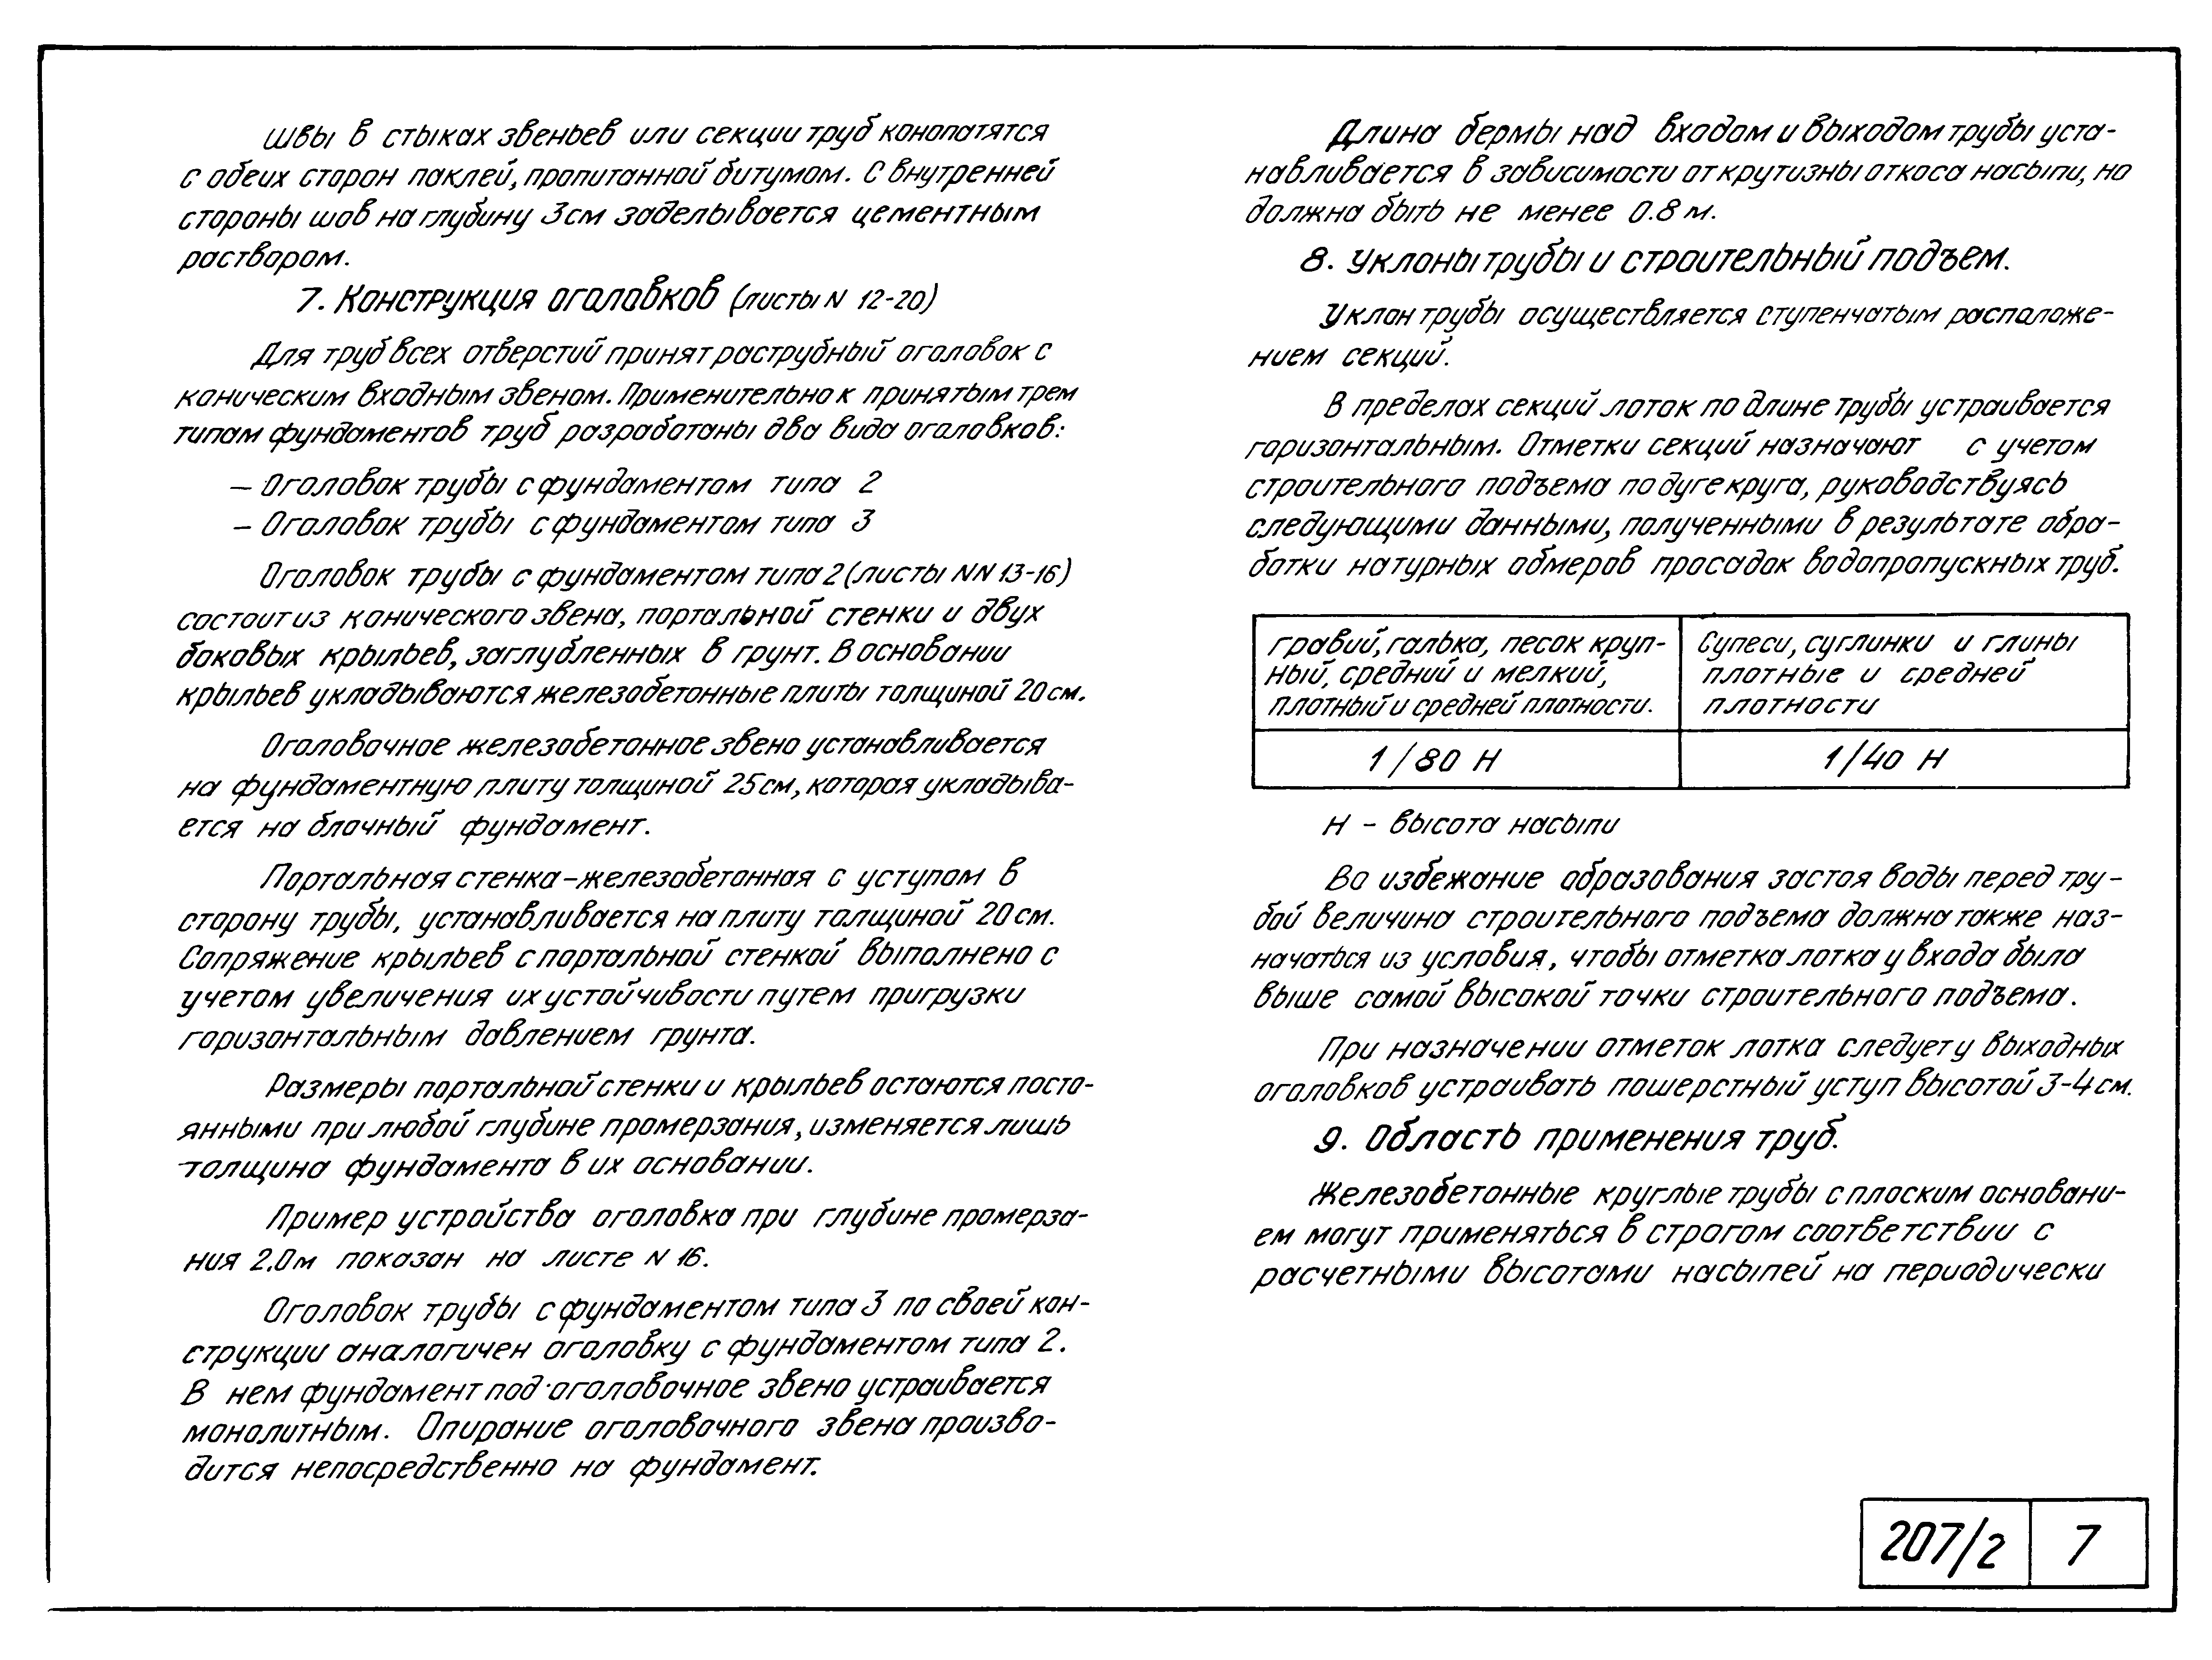 Швы в стыках звеньев или секции труб конопатятся
с обеих сторон паклей, пропитанной битумом. С внутренней
стороны шов на глубину 3см заделывается цементным
раствором.
7. Конструкция оголовков (листы N 12-20)
Для труб всех отверстий принят раструбный оголовок с
коническим входным звеном. Применительно к принятым трем
типам фундаментов труб разработаны два вида оголовков:
— Оголовок трубы с фундаментом типа 2
— Оголовок трубы с фундаментом типа 3
Оголовок трубы с фундаментом типа 2 (листы NN 13-16)
состоит из конического звена, портальной стенки и двух
боковых крыльев, заглубленных в грунт. В основании
крыльев укладываются железобетонные плиты толщиной 20см.
Оголовочное железобетонное звено устанавливается
на фундаментную плиту толщиной 25см, которая укладыва-
ется на блочный фундамент.
Портальная стенка-железобетонная с уступом в
сторону трубы, устанавливается на плиту толщиной 20см.
Сопряжение крыльев с портальной стенкой выполнено с
учетом увеличения их устойчивости путем пригрузки
горизонтальным давлением грунта.
Размеры портальной стенки и крыльев остаются посто-
янными при любой глубине промерзания, изменяется лишь
толщина фундамента в их основании.
Пример устройства оголовка при глубине промерза-
ния 2.0м показан на листе N 16.
Оголовок трубы с фундаментом типа 3 по своей кон-
струкции аналогичен оголовку с фундаментом типа 2.
В нем фундамент под оголовочное звено устраивается
монолитным. Опирание оголовочного звена произво-
дится непосредственно на фундамент.
Длина бермы над входом и выходом трубы уста-
навливается в зависимости от крутизны откоса насыпи, но
должна быть не менее 0.8м.
8. Уклоны трубы и строительный подъем.
Уклон трубы осуществляется ступенчатым расположе-
нием секций.
В пределах секций лоток по длине трубы устраивается
горизонтальным. Отметки секций назначают с учетом
строительного подъема по дуге круга, руководствуясь
следующими данными, полученными в результате обра-
ботки натурных обмеров просадок водопропускных труб.
Гравий, галька, песок круп-
ный, средний и мелкий,
плотный и средней плотности.
Супеси, суглинки и глины
плотные и средней
плотности
1/80 Н
1/40 Н
Н - высота насыпи
Во избежание образования застоя воды перед тру-
бой величина строительного подъема должна также наз-
начаться из условия, чтобы отметка лотка у входа была
выше самой высокой точки строительного подъема.
При назначении отметок лотка следует у выходных
оголовков устраивать пошерстный уступ высотой 3-4см.
9. Область применения труб.
Железобетонные круглые трубы с плоским основани-
ем могут применяться в строгом соответствии с
расчетными высотами насыпей на периодически
207/2
7